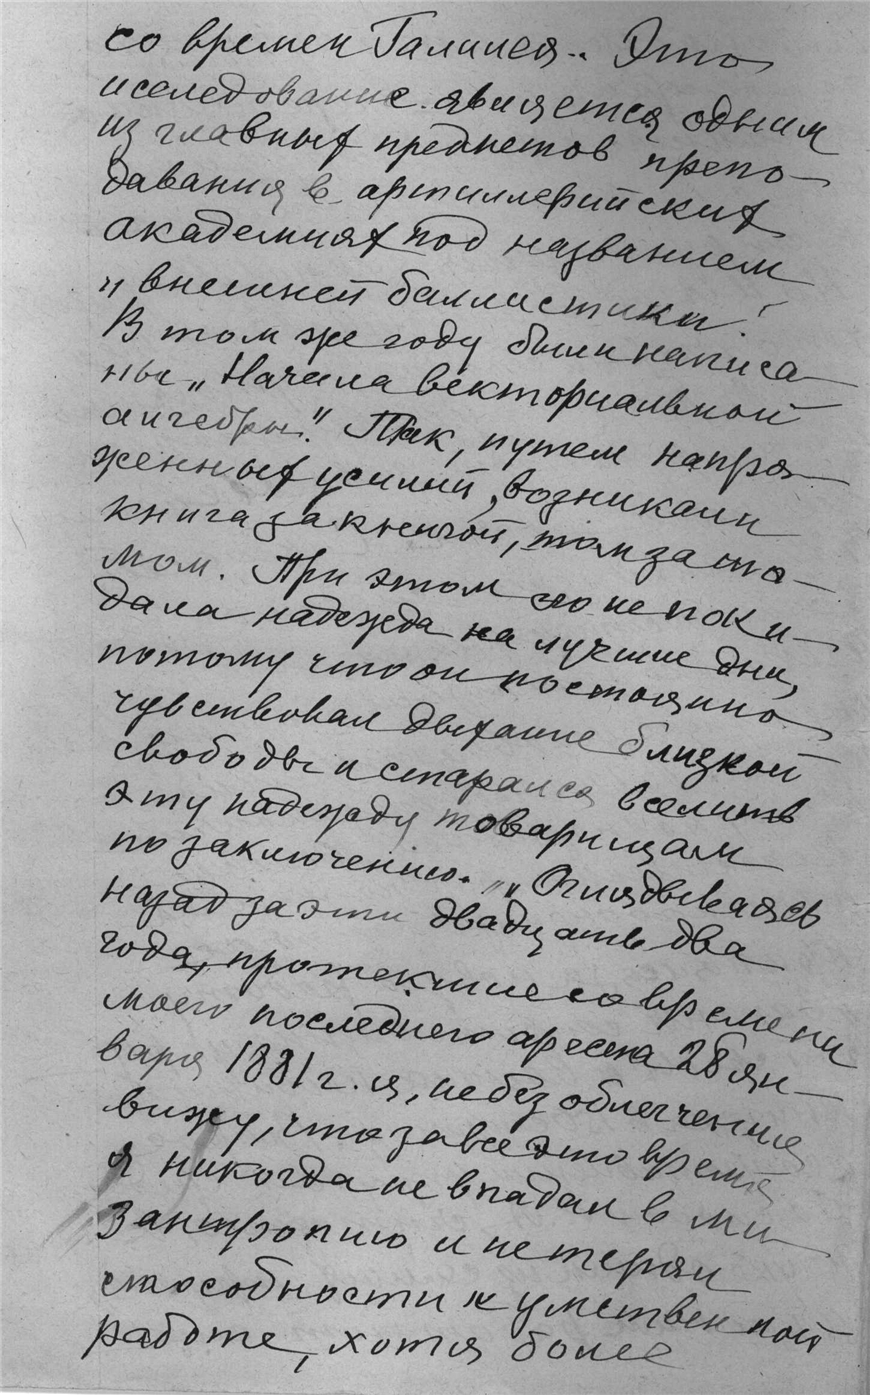 со времен Галилея.. Это
исследование является одним
из главных предметов препо-
давания в артиллерийских
академиях под названием
„внешней баллистики".
В том же году были написа-
ны „Начала векториальной
алгебры". Так, путем напря-
женных усилий, возникали
книга за книгой, том за то-
мом. При этом его не поки-
дала надежда на лучшие дни,
потому что он постоянно
чувствовал дыхание близкой
свободы и старался вселить
эту надежду товарищам
по заключению. „Оглядываясь
назад за эти двадцать два
года, протекшие со времени
моего последнего ареста 28 ян-
варя 1881 г. я, не без облегчения
вижу, что за все это время
я никогда не впадал в ми-
зантропию и не терял
способности к умственной
работе, хотя более